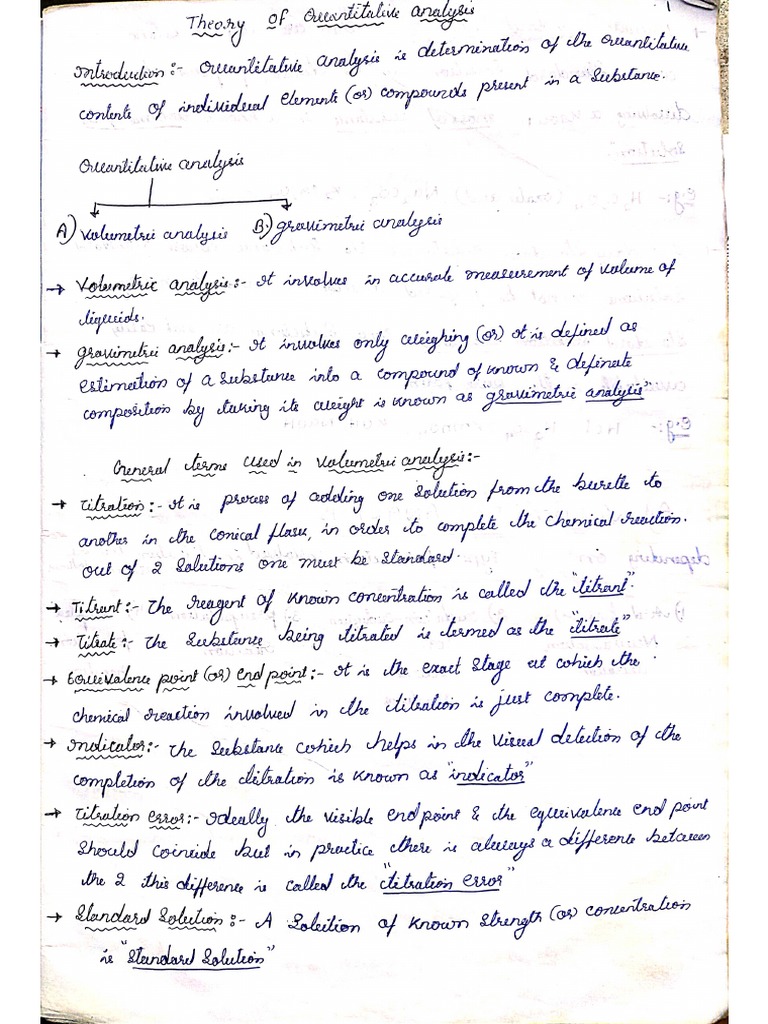 1
Theory of Quantitative analysis
Introduction:- Quantitative analysis is determination of the Quantitative
contents of individual Elements (or) compounds present in a Substance.
Quantitative analysis
A) Volumetric analysis B) gravimetric analysis
→ Volumetric analysis:- It involves in accurate measurement of volume of
liquids.
→ gravimetric analysis:- It involves only weighing (or) It is defined as
Estimation of a substance into a compound of known & definate
composition by taking its weight is known as "gravimetric analysis"
General terms used in Volumetric analysis:-
→ Titration:- It is process of adding one Solution from the burette to
another in the conical flask, in order to complete the chemical reaction.
out of 2 solutions one must be Standard.
→ Titrant:- The reagent of known concentration is called the "titrant"
→ Titrate:- The Substance being titrated is termed as the "titrate"
→ Equivalence point (or) End point:- It is the exact Stage at which the
chemical reaction involved in the titration is just complete.
→ Indicator:- The Substance which helps in the visual detection of the
completion of the titration is known as "indicator"
→ Titration error:- Ideally the visible end point & the equivalence end point
Should coincide but in practice there is always a difference between
the 2 this difference is called the "titration error"
→ Standard Solution:- A Solution of known strength (or) concentration
is "Standard Solution"